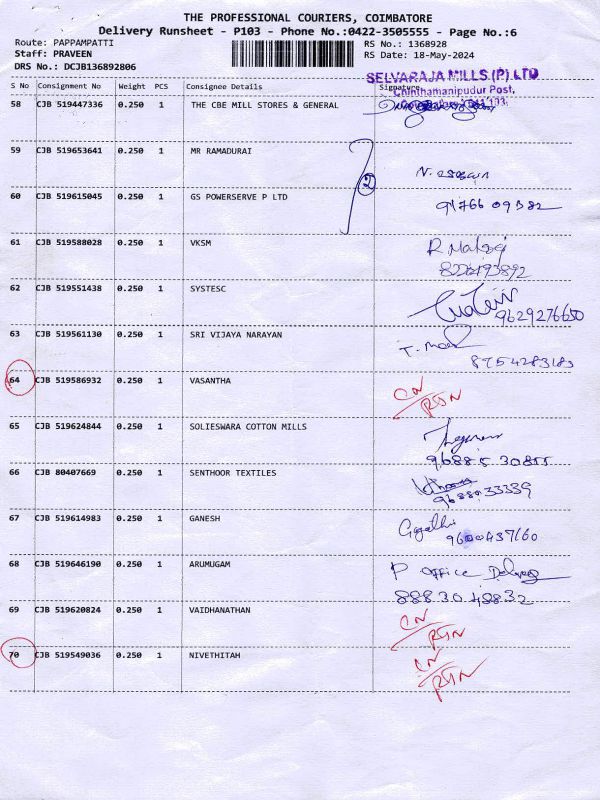 THE PROFESSIONAL COURIERS, COIMBATORE
Delivery Runsheet - P103 - Phone No.:0422-3505555 - Page No.:6
Route: PAPPAMPATTI RS No.: 1368928
Staff: PRAVEEN RS Date: 18-May-2024
DRS No.: DCJB136892806
SELVARAJA MILLS (P) LTD
S No Consignment No Weight PCS Consignee Details Signature
Chinthamanipudur Post,
58 CJB 519447336 0.250 1 THE CBE MILL STORES & GENERAL
59 CJB 519653641 0.250 1 MR RAMADURAI
2
60 CJB 519615045 0.250 1 GS POWERSERVE P LTD 91766 09382
61 CJB 519588028 0.250 1 VKSM
62 CJB 519551438 0.250 1 SYSTESC
9629276650
63 CJB 519561130 0.250 1 SRI VIJAYA NARAYAN
8754283183
64 CJB 519586932 0.250 1 VASANTHA CN/RTN
65 CJB 519624844 0.250 1 SOLIESWARA COTTON MILLS
96885 30855
66 CJB 80407669 0.250 1 SENTHOOR TEXTILES
67 CJB 519614983 0.250 1 GANESH
9600437160
68 CJB 519646190 0.250 1 ARUMUGAM P office
88830 48832
69 CJB 519620824 0.250 1 VAIDHANATHAN CN/RTN
70 CJB 519549036 0.250 1 NIVETHITAH CN/RTN